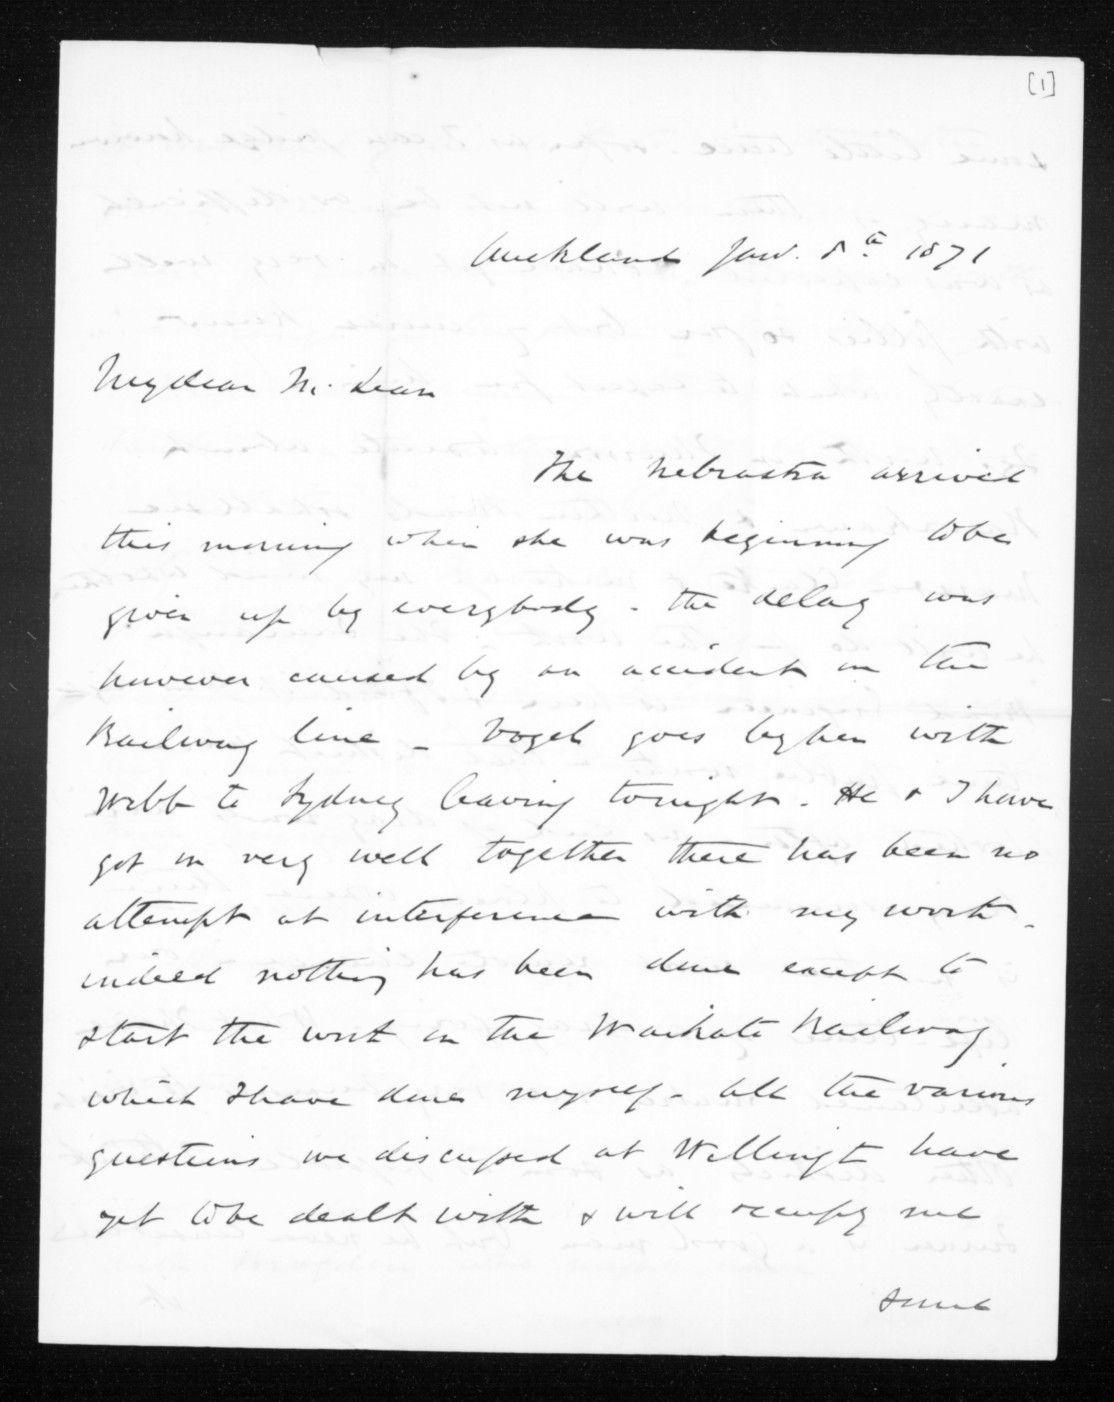 [1]
Auckland Jan. 8th 1871
My dear McLean
The Nebraska arrived
this morning when she was beginning to be
given up by everybody. The delay was
however caused by an accident on the
Railway line - Vogel goes by her with
Webb to Sydney leaving tonight. He & I have
got on very well together there has been no
attempt at interference with my work.
indeed nothing has been done except to
start the work on the Waikato Railway
which I have done myself. All the various
questions we discussed at Wellington have
yet to be dealt with & will occupy me
some